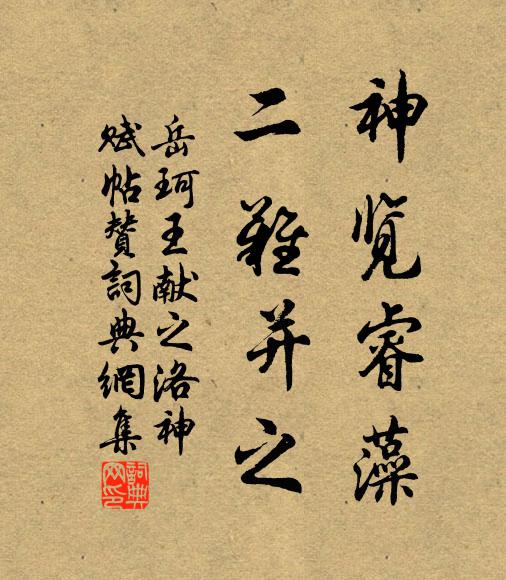 神览睿藻
二难并之
岳珂王献之洛神
赋帖赞詞典網集
詞典网印